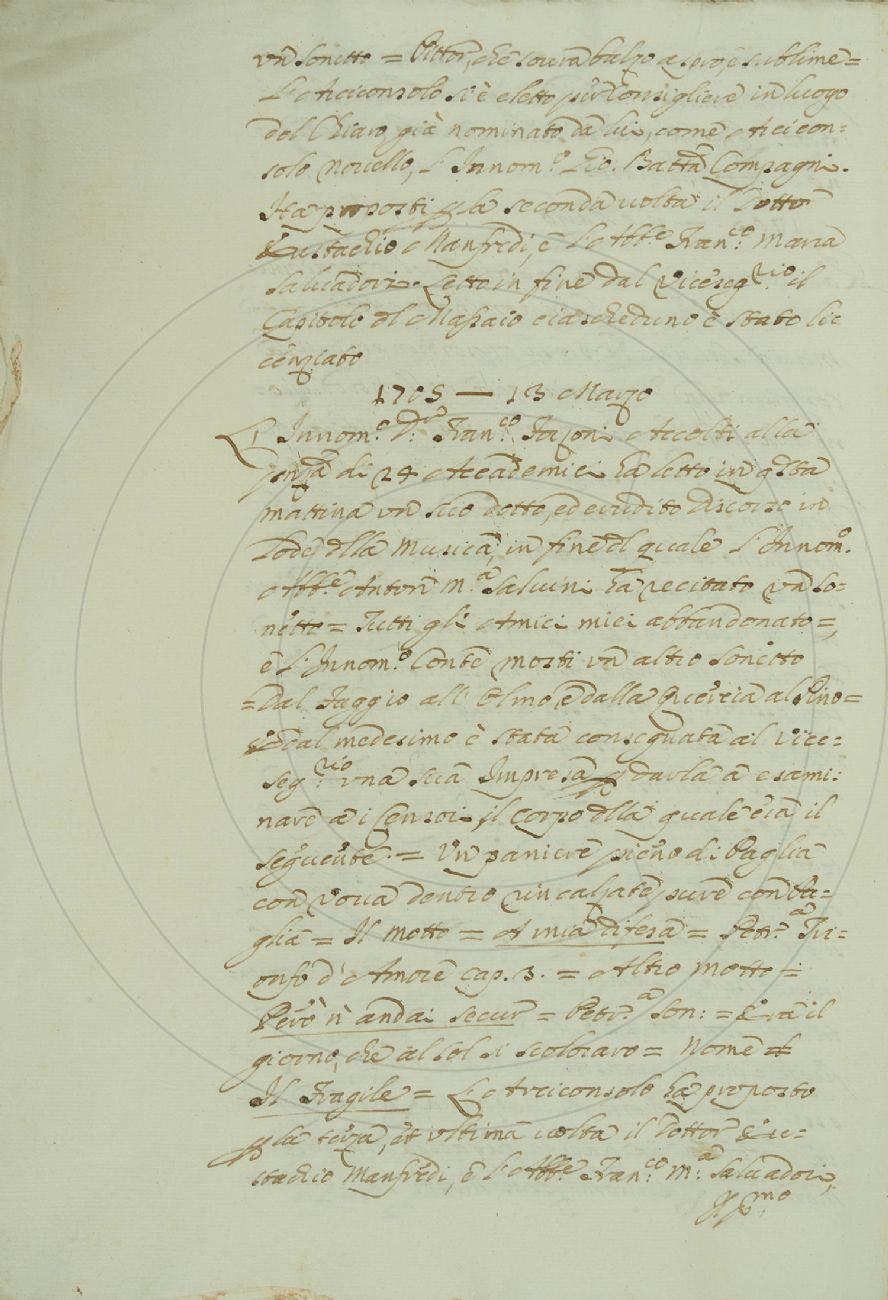 un Sonetto = Pittor, che sovra balzo aspro, e sublime =
L'Arciconsolo si è eletto per Consigliere in luogo
del Chiaro già nominato da lui, come Arcicon-
solo Novello, l'Innom.º Gio: Batta Compagni.
Ha proposti p la seconda volta il Dottor
Eustachio Manfredi, e l'Abb.e Fran.co Maria
Salvadori. Letto in fine dal Viceseg.rio il
Capitolo dl Massaio ciascheduno è stato lic
cenziato
1705 — 13 Marzo
L'Innom.º D.r Fran.co Forzoni Accolti alla
pnza di 24 Accademici ha letto in qsta
mattina un suo dotto, ed erudito discorso in
Lode dlla Musica, in fine dl quale l'Innom.º
Abb.e Anton M.a Salvini ha recitato un So-
netto = Tutti gli Amici miei abbandonato =,
e l'Innom.º Conte Morti un altro Sonetto
= Dal Faggio all'Olmo, e dalla Quercia al Pino =
e dal medesimo è stata consegnata al Vice=
seg.rio una sua Impresa p darla a esami:
nare a i Censori, il corpo dlla quale era il
seguente. = Un paniere pieno di Paglia
con Vova dentro rincalzate pure con Pa-
glia = Il motto = A mia difesa = Petr.a Tri-
onfo d'Amore cap. 3. = Altro motto =
Però n'andai secur = Petr.a Son: = Era il
giorno, che al sol si scoloraro = Nome =
Il Fragile = L'Arciconsolo ha proposto
p la terza, et ultima volta il Dottor Eu-
stachio Manfredi, e l'Abb.e Fran.co M.a Salvadori,